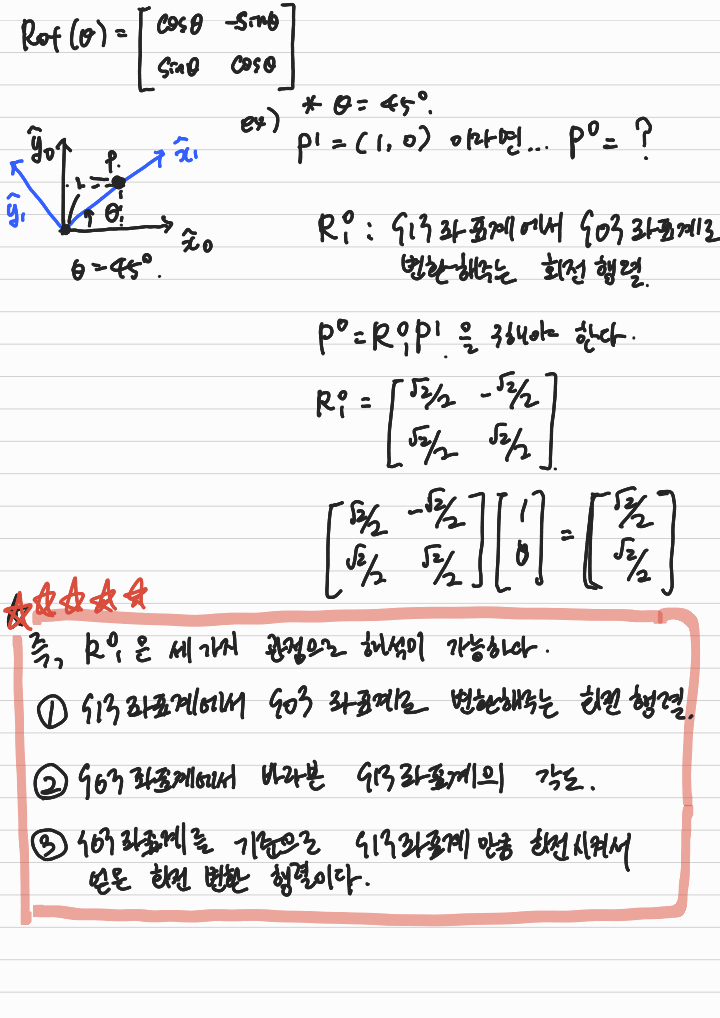 Rot(θ) = [cosθ -sinθ
sinθ cosθ]
ex) * θ = 45°.
P¹ = (1, 0) 이라면... P⁰ = ?
ŷ₀ P. x̂₁
ŷ₁ θ x̂₀
θ = 45°.
R⁰₁ : {1} 좌표계에서 {0} 좌표계로
변환해주는 회전 행렬.
P⁰ = R⁰₁P¹ 을 구해야 한다.
R⁰₁ = [√2/2 -√2/2
√2/2 √2/2].
[√2/2 -√2/2 [1 = [√2/2
√2/2 √2/2] 0] √2/2]
즉, R⁰₁ 은 세 가지 관점으로 해석이 가능하다.
① {1} 좌표계에서 {0} 좌표계로 변환해주는 회전 행렬.
② {0} 좌표계에서 바라본 {1} 좌표계의 각도.
③ {0} 좌표계를 기준으로 {1} 좌표계 만큼 회전시켜서
얻은 회전 변환 행렬이다.